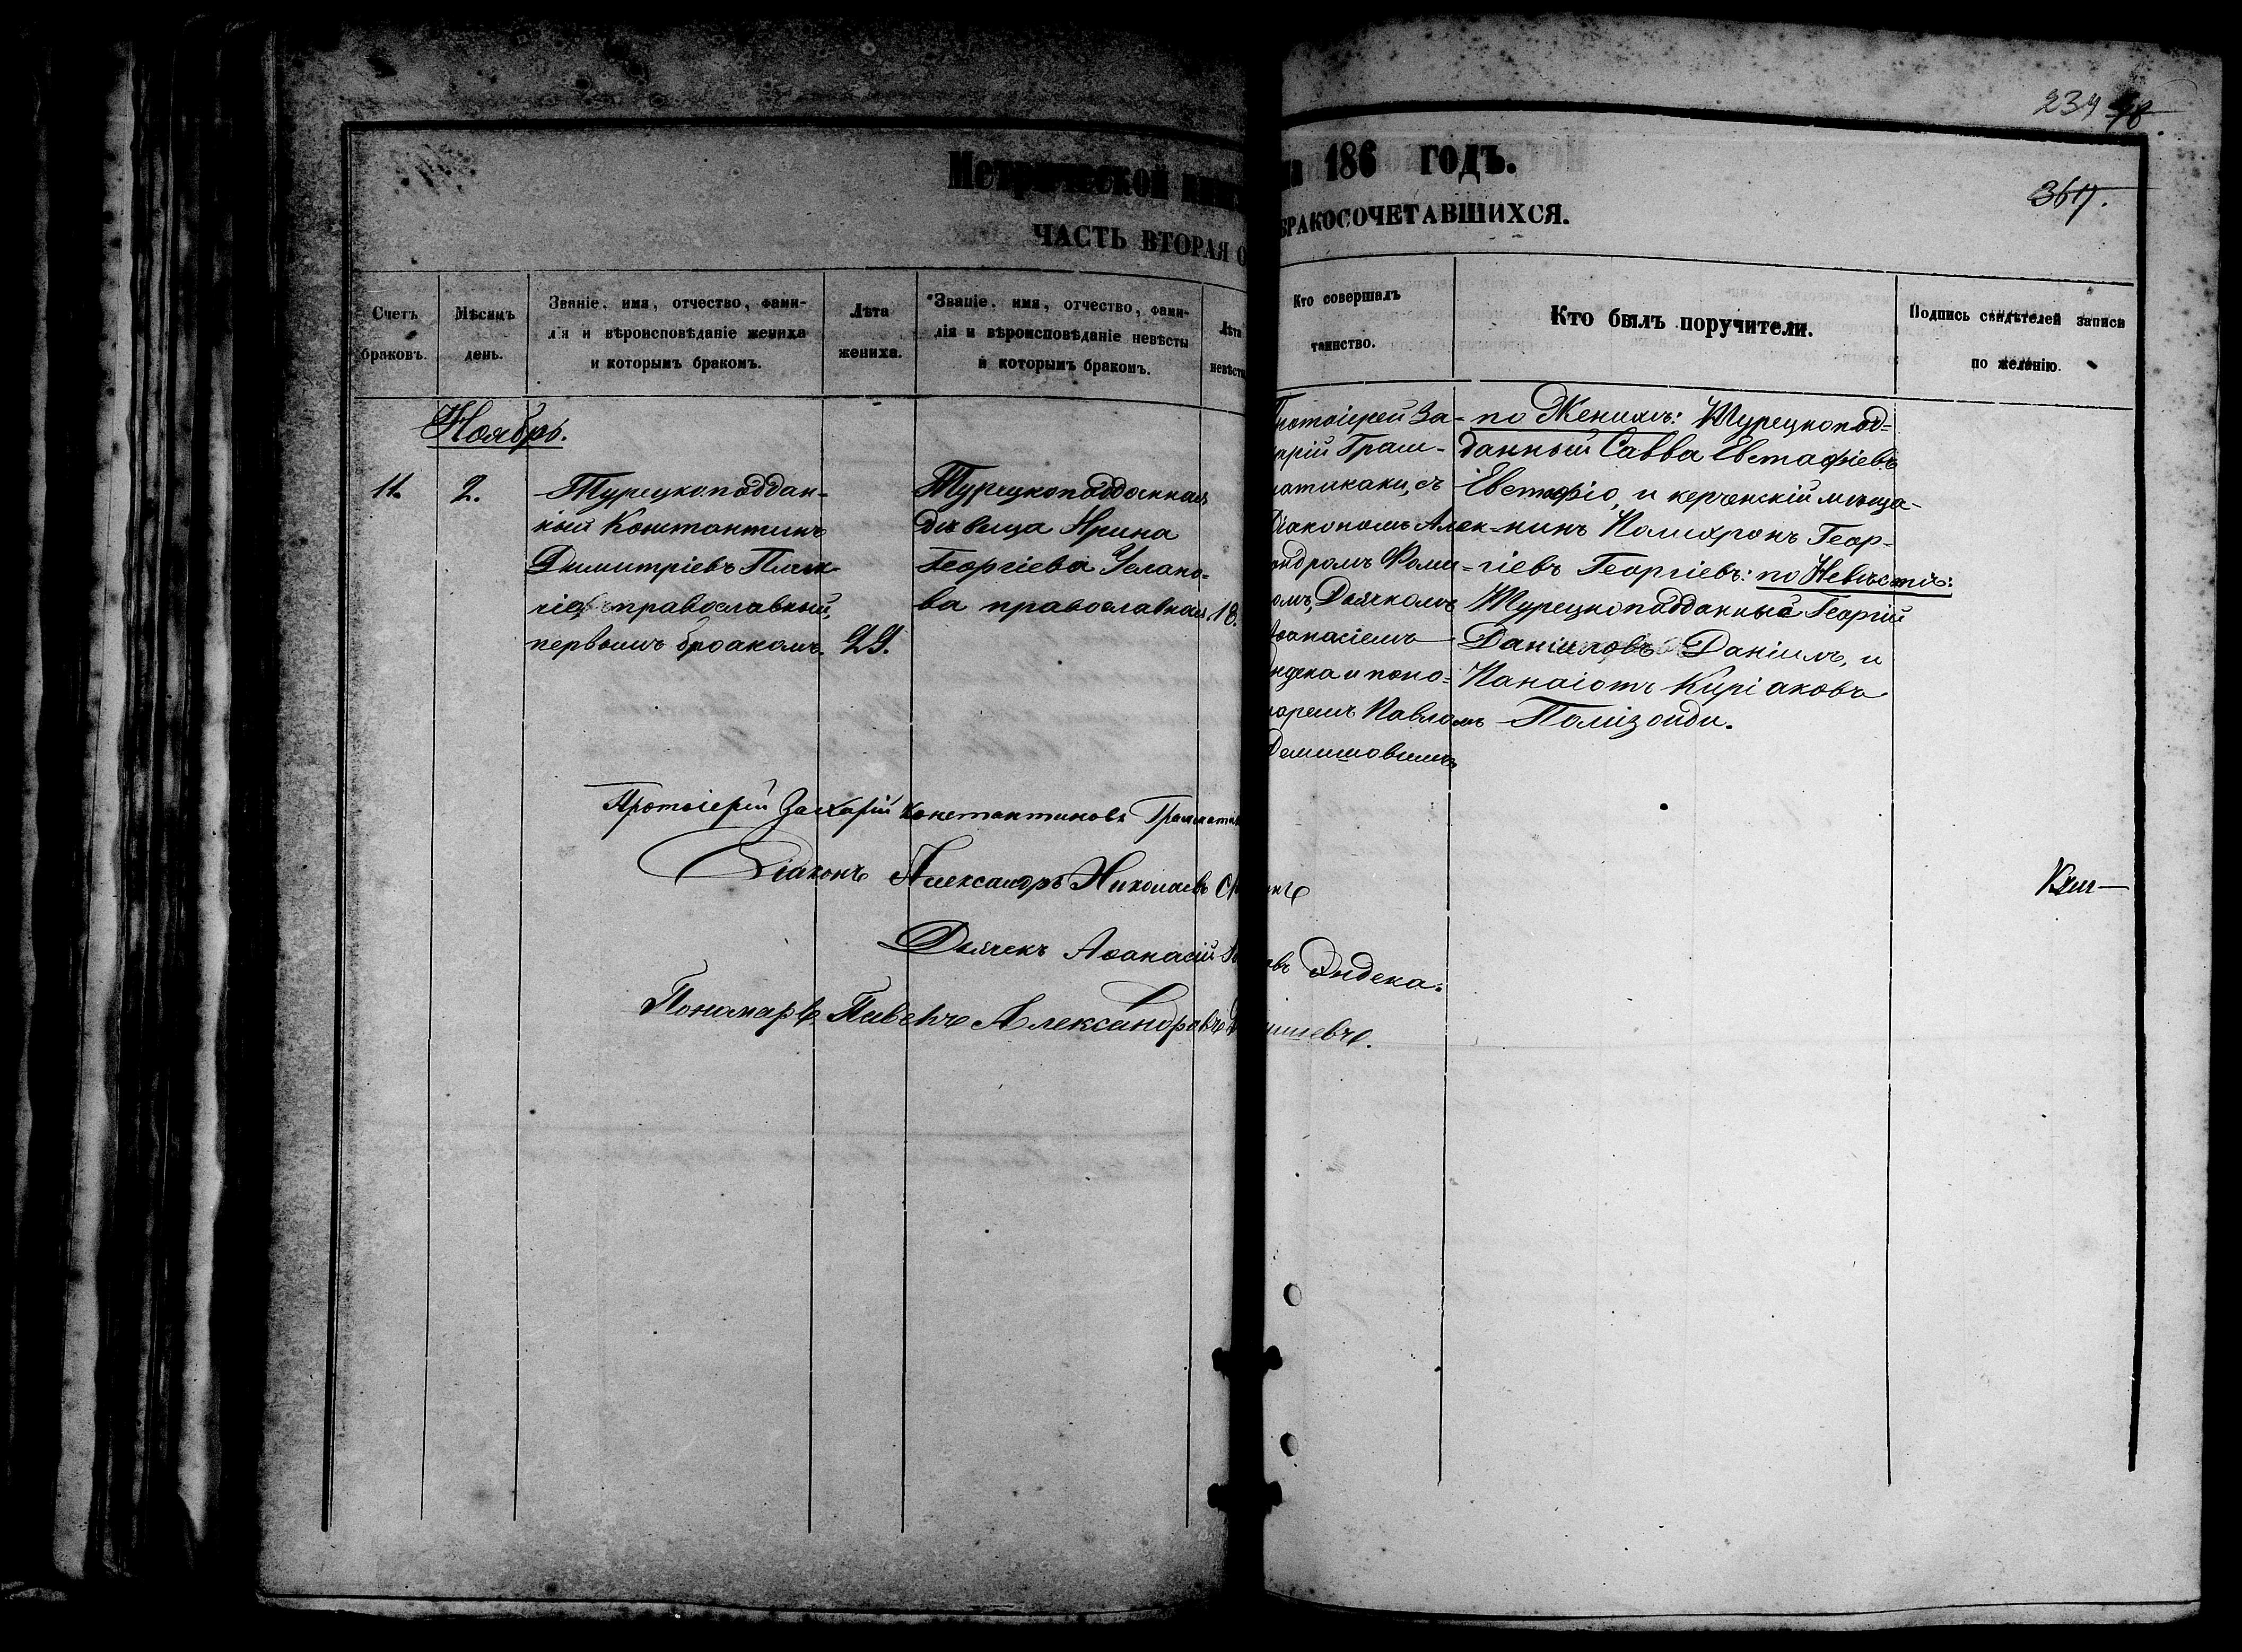 234
3617.
Метрической
на 186 годъ.
ЧАСТЬ ВТОРАЯ О
БРАКОСОЧЕТАВШИХСЯ.
Счетъ браковъ.
Мѣсяцъ день.
Званіе, имя, отчество, фами-
лія и вѣроисповѣданіе жениха
и которымъ бракомъ.
Лѣта жениха.
Званіе, имя, отчество, фами-
лія и вѣроисповѣданіе невѣсты
и которымъ бракомъ.
Лѣта
невѣсты
Кто совершалъ
таинство.
Кто былъ поручители.
Подпись свидѣтелей записи
по желанію.
Ноябрь.
11.
2.
Турецкоподдан-
ный Константинъ
Димитріевъ
православный,
первымъ бракомъ.
29.
Турецкоподданная
дѣвица Ирина
Георгіева
ва православная.
18.
Протоіерей За-
харій Грам-
матикаки, съ
Діакономъ Алек-
сандромъ
омъ, Дьячкомъ
Аѳанасіемъ
Эндека и поно-
маремъ Павломъ
по Женихѣ: Турецкопод-
данный Савва Евстафіевъ
Евстафіо, и керченскій мѣща-
нинъ Полихронъ Геор-
гіевъ Георгіевъ: по Невѣстѣ:
Турецкоподданный Георгій
Даніиловъ Даніилъ, и
Панаіотъ Киріаковъ
Протоіерей Захарій Константиновъ
Діаконъ Александръ Николаевъ
Дьячекъ Аѳанасій
Эндека.
Пономарь Павелъ Александровъ